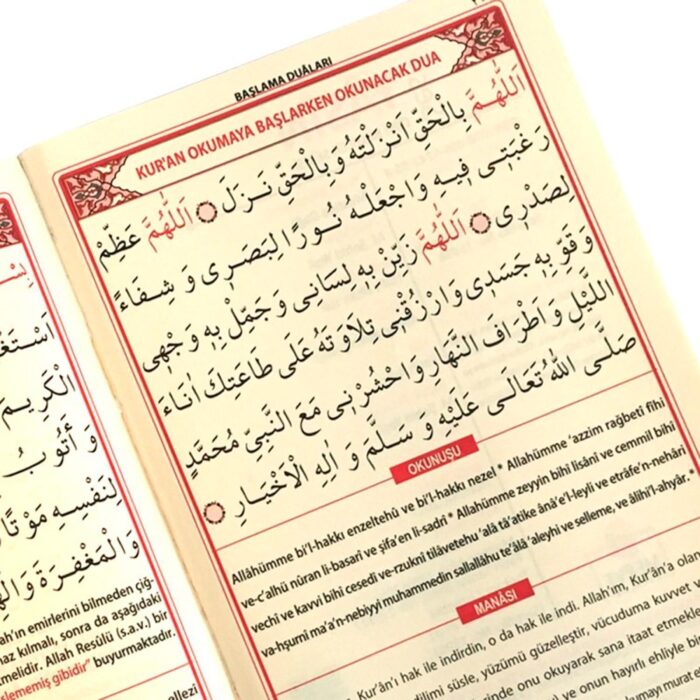 BAŞLAMA DUÂLARI
KUR'AN OKUMAYA BAŞLARKEN OKUNACAK DUA
اَللّٰهُمَّ بِالْحَقِّ اَنْزَلْتَهُ وَبِالْحَقِّ نَزَلَ ۞ اَللّٰهُمَّ عَظِّمْ
رَغْبَتٖى فٖيهِ وَاجْعَلْهُ نُورًا لِبَصَرٖى وَ شِفَاءً
لِصَدْرٖى ۞ اَللّٰهُمَّ زَيِّنْ بِهٖ لِسَانٖى وَ جَمِّلْ بِهٖ وَجْهٖى
وَ قَوِّ بِهٖ جَسَدٖى وَارْزُقْنٖى تِلَاوَتَهُ عَلٰى طَاعَتِكَ اٰنَاءَ
الَّيْلِ وَ اَطْرَافَ النَّهَارِ وَاحْشُرْنٖى مَعَ النَّبِىِّ مُحَمَّدٍ
صَلَّى اللّٰهُ تَعَالٰى عَلَيْهِ وَ سَلَّمَ وَ اٰلِهِ الْاَخْيَارِ ۞
OKUNUŞU
Allâhümme bi'l-hakkı enzeltehû ve bi'l-hakkı nezel * Allahümme 'azzim rağbetî fîhi
ve-c'alhü nûran li-basarî ve şifa'en li-sadrî * Allahümme zeyyin bihî lisânî ve cemmil bihî
vechî ve kavvi bihî cesedî ve-rzuknî tilâvetehu 'alâ tâ'atike ânâ'e'l-leyli ve etrâfe'n-nehâri
va-hşurnî ma'a'n-nebiyyi muhammedin sallallâhu te'âlâ 'aleyhi ve selleme, ve âlihi'l-ahyâr. *
MANÂSI
Kur'ân'ı hak ile indirdin, o da hak ile indi. Allah'ım, Kur'ân'a olan
dilimi süsle, yüzümü güzelleştir, vücuduma kuvvet
inde, onu okuyarak sana itaat etmek
onun hayırlı ehliyle
اَسْتَغْ
الْكَرٖيمَ
وَ اَتُوبُ
لِنَفْسِهٖ مَوْتًا
وَالْمَغْفِرَةَ وَالْهِ
ah'ın emirlerini bilmeden çiğ-
naz kılmalı, sonra da aşağıdaki
melidir. Allah Resûlü (s.a.v.) bir
işlememiş gibidir" buyurmaktadır.
ellezi